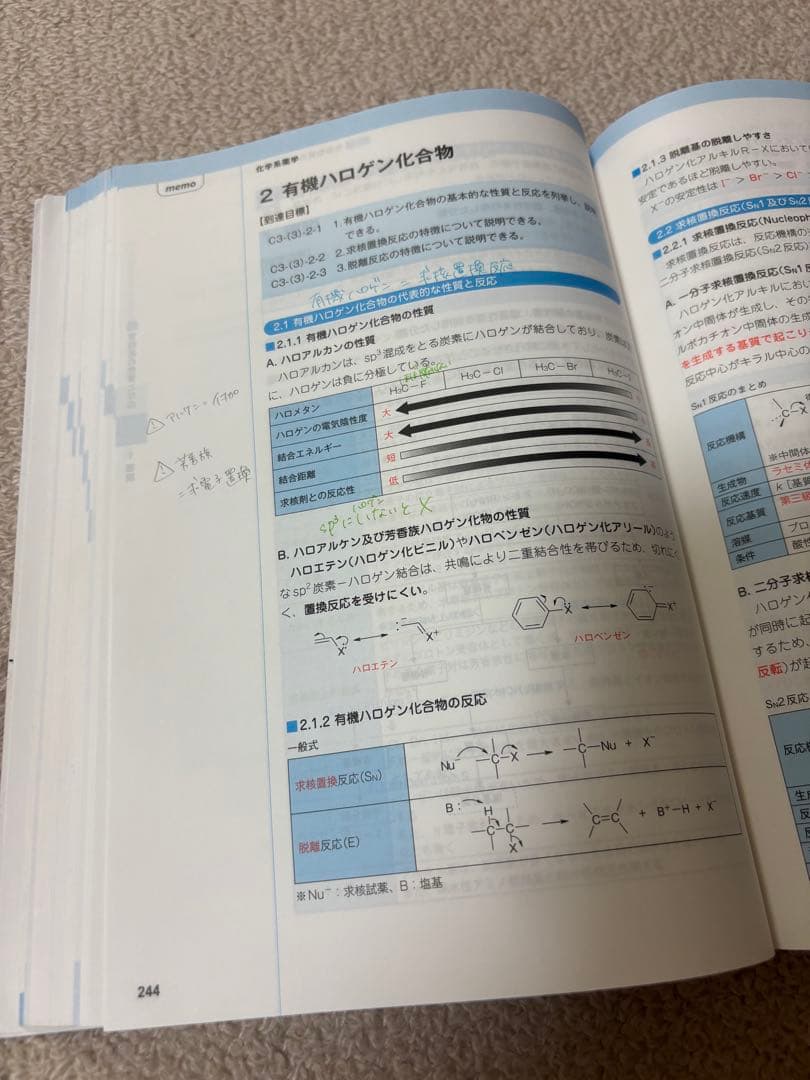 memo
化学系薬学
2 有機ハロゲン化合物
【到達目標】
C3-(3)-2-1 1.有機ハロゲン化合物の基本的な性質と反応を列挙し、説明
できる。
C3-(3)-2-2 2.求核置換反応の特徴について説明できる。
C3-(3)-2-3 3.脱離反応の特徴について説明できる。
有機ハロゲン=求核置換反応
2.1 有機ハロゲン化合物の代表的な性質と反応
■2.1.1 有機ハロゲン化合物の性質
A. ハロアルカンの性質
ハロアルカンは、sp³混成をとる炭素にハロゲンが結合しており、炭素は
に、ハロゲンは負に分極している。
ハロメタン H₃C－F H₃C－Cl H₃C－Br H₃C－
ハロゲンの電気陰性度 大
結合エネルギー 大
結合距離 短
求核剤との反応性 低
ハロゲン
sp³にしないと X
B. ハロアルケン及び芳香族ハロゲン化物の性質
ハロエテン(ハロゲン化ビニル)やハロベンゼン(ハロゲン化アリール)のよう
なsp²炭素－ハロゲン結合は、共鳴により二重結合性を帯びるため、切れにく
く、置換反応を受けにくい。
X X⁺ X X⁺
ハロエテン ハロベンゼン
■2.1.2 有機ハロゲン化合物の反応
一般式
求核置換反応(SN) Nu⁻ －C－X → －C－Nu + X⁻
脱離反応(E) B: H －C－C－ X → C=C + B⁺－H + X⁻
※Nu⁻：求核試薬、B：塩基
芳香族
=求電子置換
244
■2.1.3 脱離基の脱離しやすさ
ハロゲン化アルキルR－Xにおいて
安定であるほど脱離しやすい。
X⁻の安定性は I⁻ > Br⁻ > Cl⁻
2.2 求核置換反応(SN1及びSN2
■2.2.1 求核置換反応(Nucleoph
求核置換反応は、反応機構の
二分子求核置換反応(SN2反応)
A. 一分子求核置換反応(SN1
ハロゲン化アルキルにおい
オン中間体が生成し、その
ルボカチオン中間体の生成
を生成する基質で起こり
反応中心がキラル中心の
SN1反応のまとめ
反応機構 C－X
※中間体
生成物 ラセミ体
反応速度 k[基質
反応基質 第三級
溶媒 プロ
条件 酸性
B. 二分子求核
ハロゲン
が同時に起
するため、
反転)が起
SN2反応
反応機